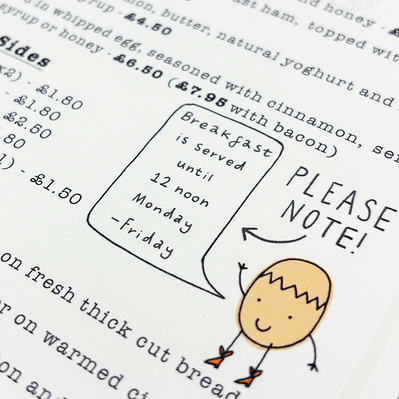 and honey - £
st ham, topped wit
on, butter, natural yoghurt and
syrup - £4.50
in whipped egg, seasoned with cinnamon, ser
syrup or honey - £6.50 (£7.95 with bacon)
Sides
x2) - £1.80
- £1.80
£2.50
.80
) - £1.50
Breakfast
is served
until
12 noon
Monday
-Friday
PLEASE
NOTE!
on fresh thick cut bread
on warmed ci
on and